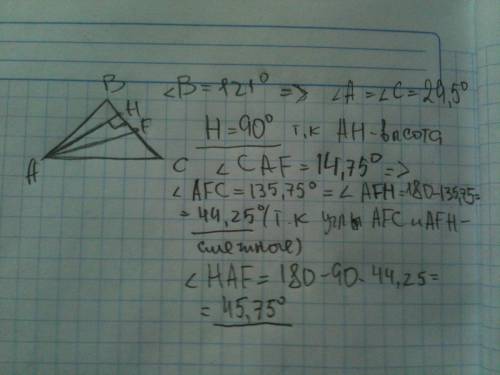 B
H
F
A
C
∠B = 121° => ∠A = ∠C = 29,5°
H = 90° т.к AH - высота
∠CAF = 14,75° =>
∠AFC = 135,75° = ∠AFH = 180 - 135,75 =
= 44,25° (т.к углы AFC и AFH -
смежное)
∠HAF = 180 - 90 - 44,25 =
= 45,75°